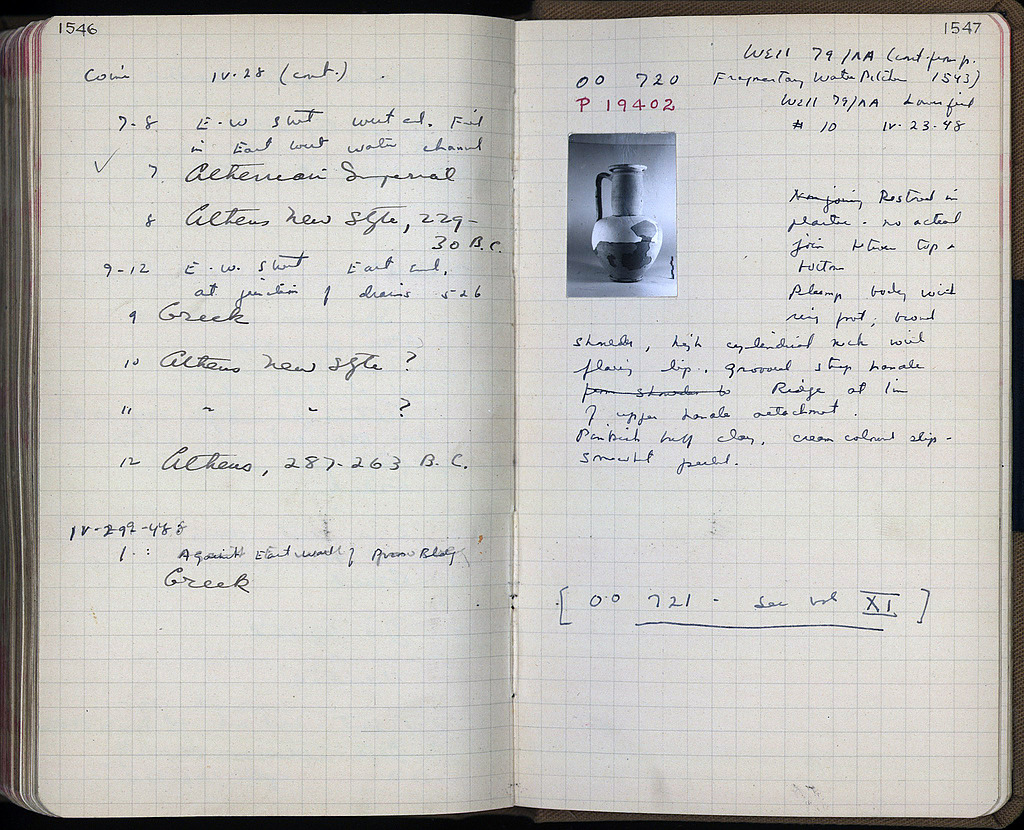 1546
Coins IV·28 (cont.).
7-8 E-W Street west end. Fill
in East west water channel
✓ 7. Athenian Imperial
8 Athens New Style, 229-
30 B.C.
9-12 E.W. Street East end,
at junction of drains 526
9 Greek
10 Athens New Style ?
11 " " ?
12 Athens, 287-263 B.C.
IV-29-48
1. : Against East wall of Bldg
Greek
1547
Well 79/AA (cont. from p.
1543)
OO 720 Fragmentary Water Pitcher
P 19402
Well 79/AA Lower fill
# 10 IV-23-48
Non joining Restored in
plaster - no actual
join between top &
bottom
Plump body with
ring foot; broad
shoulder, high cylindrical neck with
flaring lip. grooved strap handle
from shoulder to Ridge at line
of upper handle attachment.
Pinkish buff clay, cream colored slip -
somewhat peeled.
[ OO 721 - See vol XI ]